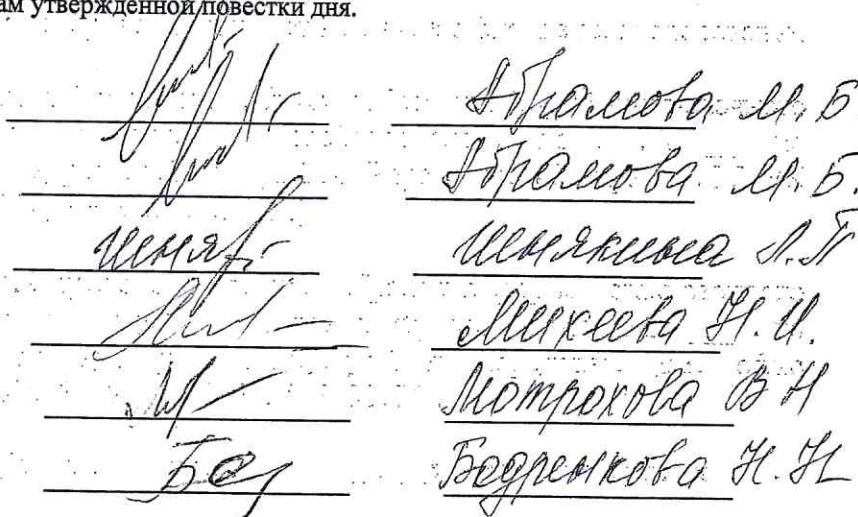 ам утвержденной повестки дня.
Абрамова М. Б
Абрамова М. Б.
Шнякина Л. П
Михеева Н. И.
Мотрохова В Н
Бодренкова Н. Н